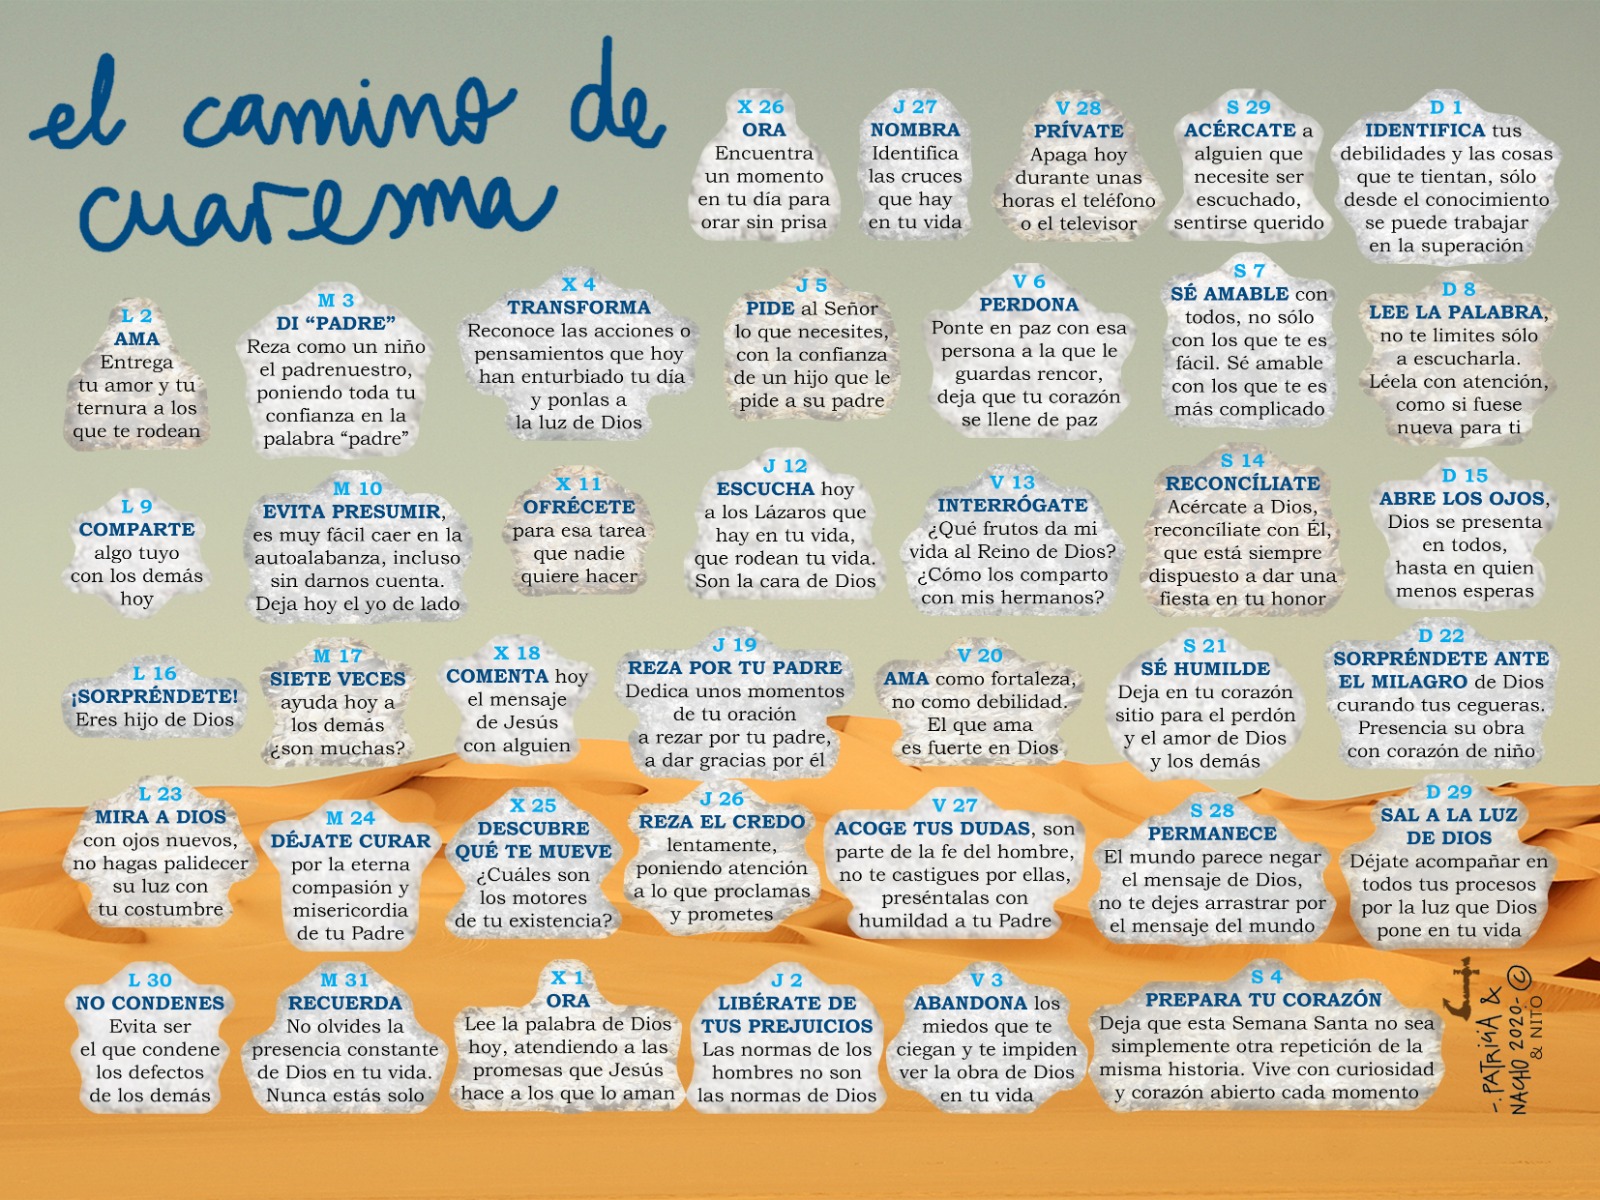 el camino de
cuaresma
X 26
ORA
Encuentra
un momento
en tu día para
orar sin prisa
J 27
NOMBRA
Identifica
las cruces
que hay
en tu vida
V 28
PRÍVATE
Apaga hoy
durante unas
horas el teléfono
o el televisor
S 29
ACÉRCATE a
alguien que
necesite ser
escuchado,
sentirse querido
D 1
IDENTIFICA tus
debilidades y las cosas
que te tientan, sólo
desde el conocimiento
se puede trabajar
en la superación
L 2
AMA
Entrega
tu amor y tu
ternura a los
que te rodean
M 3
DI “PADRE”
Reza como un niño
el padrenuestro,
poniendo toda tu
confianza en la
palabra “padre”
X 4
TRANSFORMA
Reconoce las acciones o
pensamientos que hoy
han enturbiado tu día
y ponlas a
la luz de Dios
J 5
PIDE al Señor
lo que necesites,
con la confianza
de un hijo que le
pide a su padre
V 6
PERDONA
Ponte en paz con esa
persona a la que le
guardas rencor,
deja que tu corazón
se llene de paz
S 7
SÉ AMABLE con
todos, no sólo
con los que te es
fácil. Sé amable
con los que te es
más complicado
D 8
LEE LA PALABRA,
no te limites sólo
a escucharla.
Léela con atención,
como si fuese
nueva para ti
L 9
COMPARTE
algo tuyo
con los demás
hoy
M 10
EVITA PRESUMIR,
es muy fácil caer en la
autoalabanza, incluso
sin darnos cuenta.
Deja hoy el yo de lado
X 11
OFRÉCETE
para esa tarea
que nadie
quiere hacer
J 12
ESCUCHA hoy
a los Lázaros que
hay en tu vida,
que rodean tu vida.
Son la cara de Dios
V 13
INTERRÓGATE
¿Qué frutos da mi
vida al Reino de Dios?
¿Cómo los comparto
con mis hermanos?
S 14
RECONCÍLIATE
Acércate a Dios,
reconcíliate con Él,
que está siempre
dispuesto a dar una
fiesta en tu honor
D 15
ABRE LOS OJOS,
Dios se presenta
en todos,
hasta en quien
menos esperas
L 16
¡SORPRÉNDETE!
Eres hijo de Dios
M 17
SIETE VECES
ayuda hoy a
los demás
¿son muchas?
X 18
COMENTA hoy
el mensaje
de Jesús
con alguien
J 19
REZA POR TU PADRE
Dedica unos momentos
de tu oración
a rezar por tu padre,
a dar gracias por él
V 20
AMA como fortaleza,
no como debilidad.
El que ama
es fuerte en Dios
S 21
SÉ HUMILDE
Deja en tu corazón
sitio para el perdón
y el amor de Dios
y los demás
D 22
SORPRÉNDETE ANTE
EL MILAGRO de Dios
curando tus cegueras.
Presencia su obra
con corazón de niño
L 23
MIRA A DIOS
con ojos nuevos,
no hagas palidecer
su luz con
tu costumbre
M 24
DÉJATE CURAR
por la eterna
compasión y
misericordia
de tu Padre
X 25
DESCUBRE
QUÉ TE MUEVE
¿Cuáles son
los motores
de tu existencia?
J 26
REZA EL CREDO
lentamente,
poniendo atención
a lo que proclamas
y prometes
V 27
ACOGE TUS DUDAS, son
parte de la fe del hombre,
no te castigues por ellas,
preséntalas con
humildad a tu Padre
S 28
PERMANECE
El mundo parece negar
el mensaje de Dios,
no te dejes arrastrar por
el mensaje del mundo
D 29
SAL A LA LUZ
DE DIOS
Déjate acompañar en
todos tus procesos
por la luz que Dios
pone en tu vida
L 30
NO CONDENES
Evita ser
el que condene
los defectos
de los demás
M 31
RECUERDA
No olvides la
presencia constante
de Dios en tu vida.
Nunca estás solo
X 1
ORA
Lee la palabra de Dios
hoy, atendiendo a las
promesas que Jesús
hace a los que lo aman
J 2
LIBÉRATE DE
TUS PREJUICIOS
Las normas de los
hombres no son
las normas de Dios
V 3
ABANDONA los
miedos que te
ciegan y te impiden
ver la obra de Dios
en tu vida
S 4
PREPARA TU CORAZÓN
Deja que esta Semana Santa no sea
simplemente otra repetición de la
misma historia. Vive con curiosidad
y corazón abierto cada momento
-. PATRICIA &
NACHO 2020- ©
& NITO